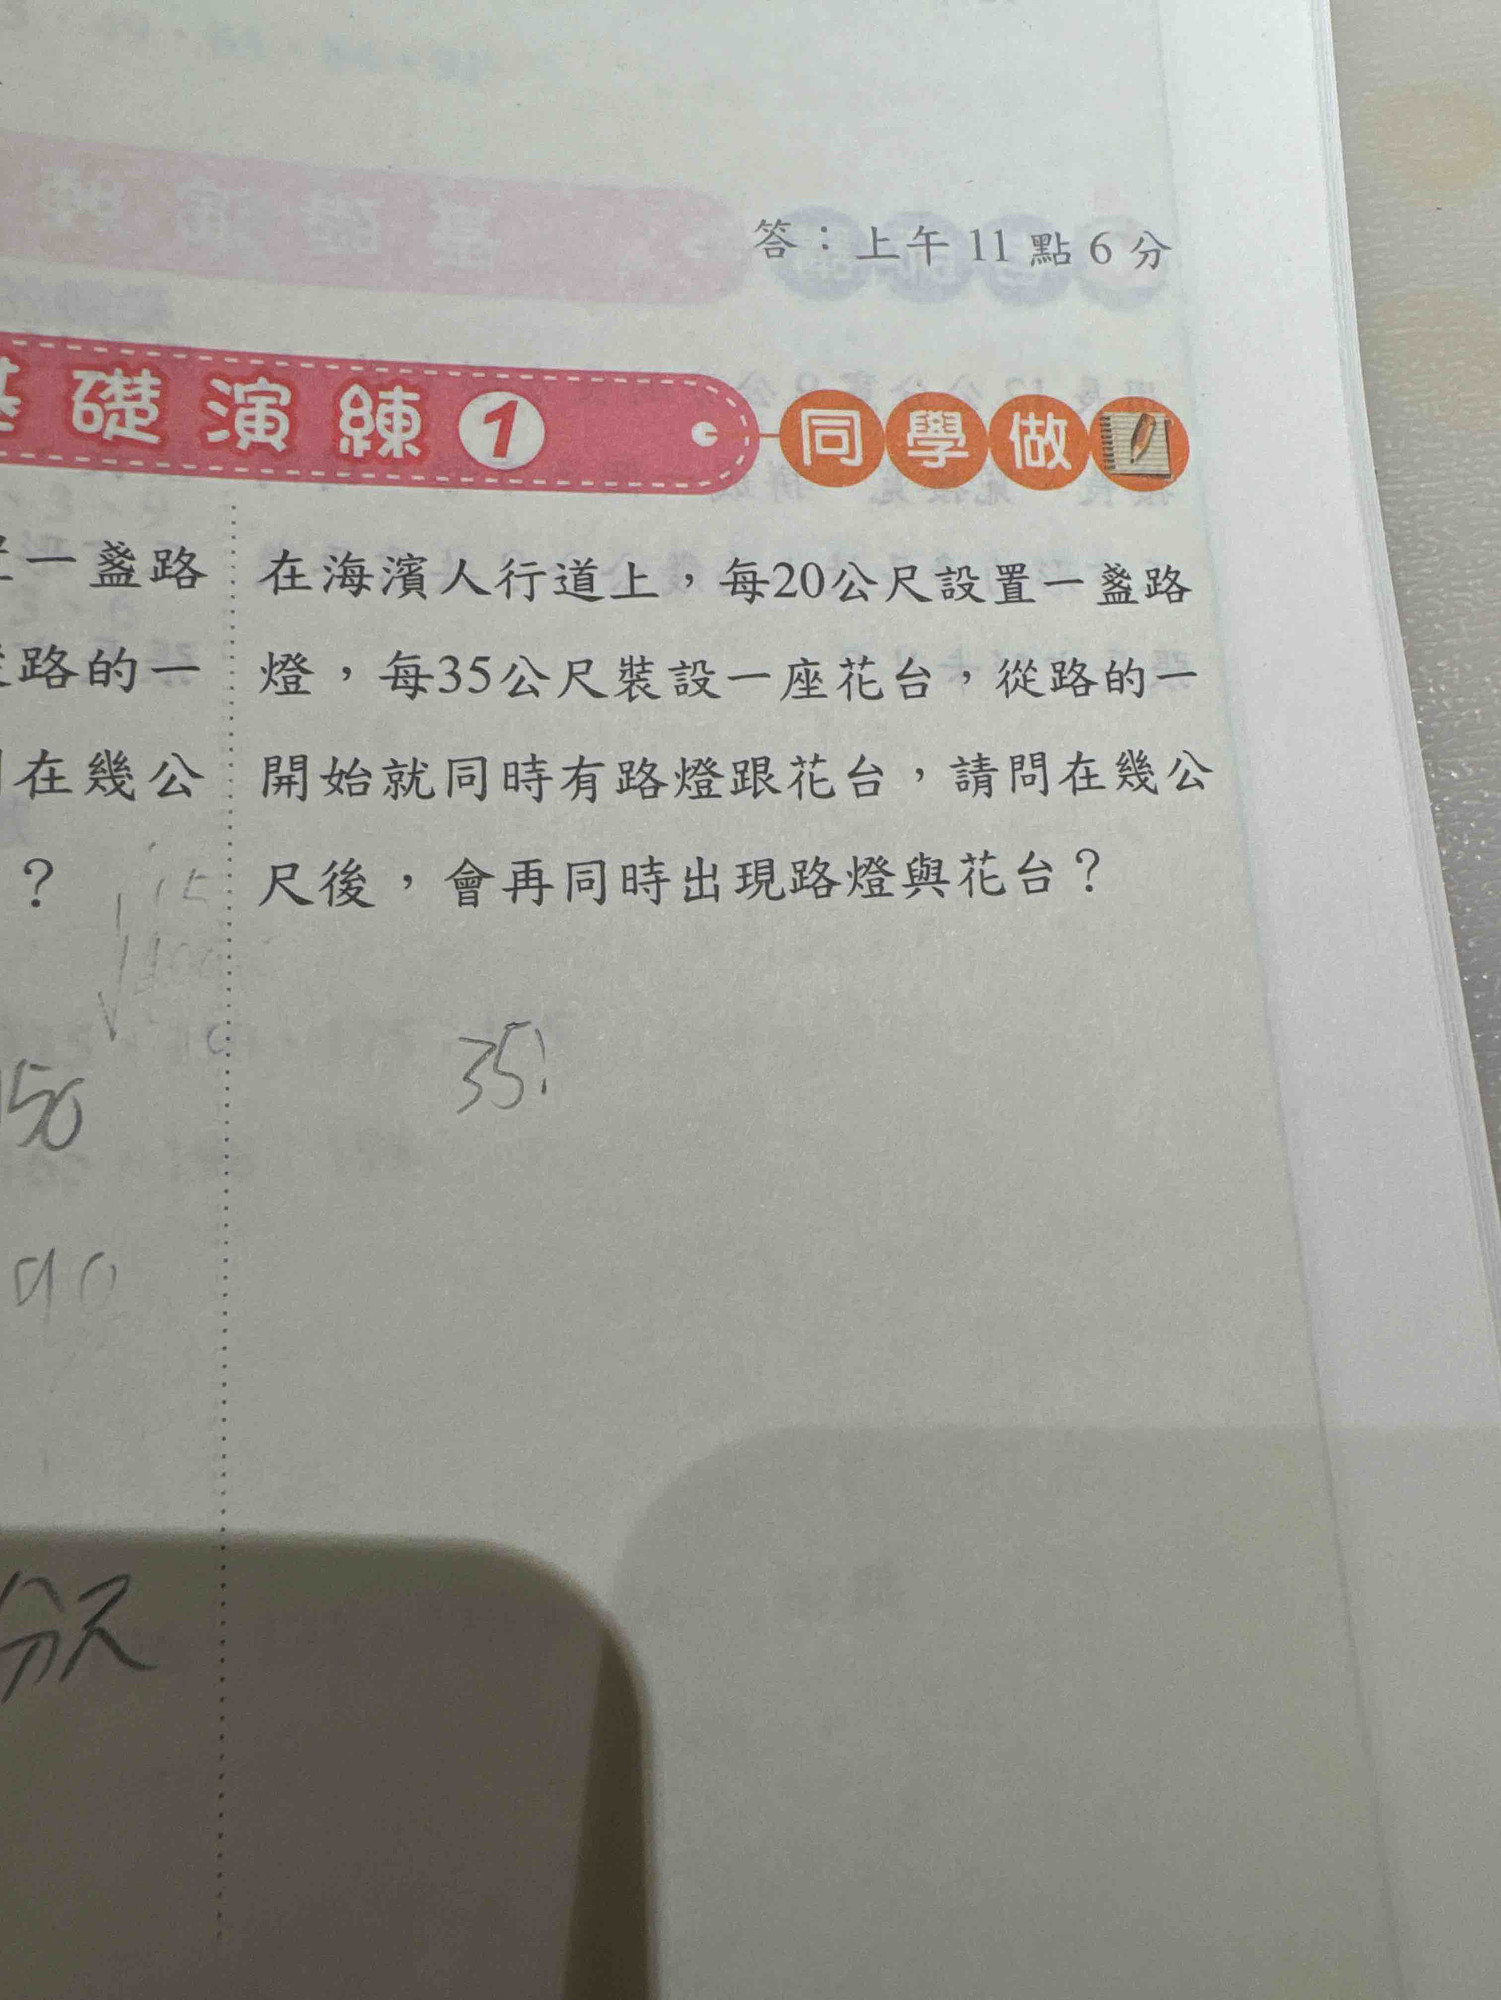 答：上午 11 點 6 分
基礎演練 1 同學做
一盞路
路的一
在幾公
？
在海濱人行道上，每20公尺設置一盞路
燈，每35公尺裝設一座花台，從路的一
開始就同時有路燈跟花台，請問在幾公
尺後，會再同時出現路燈與花台？
35
50
90
分尺